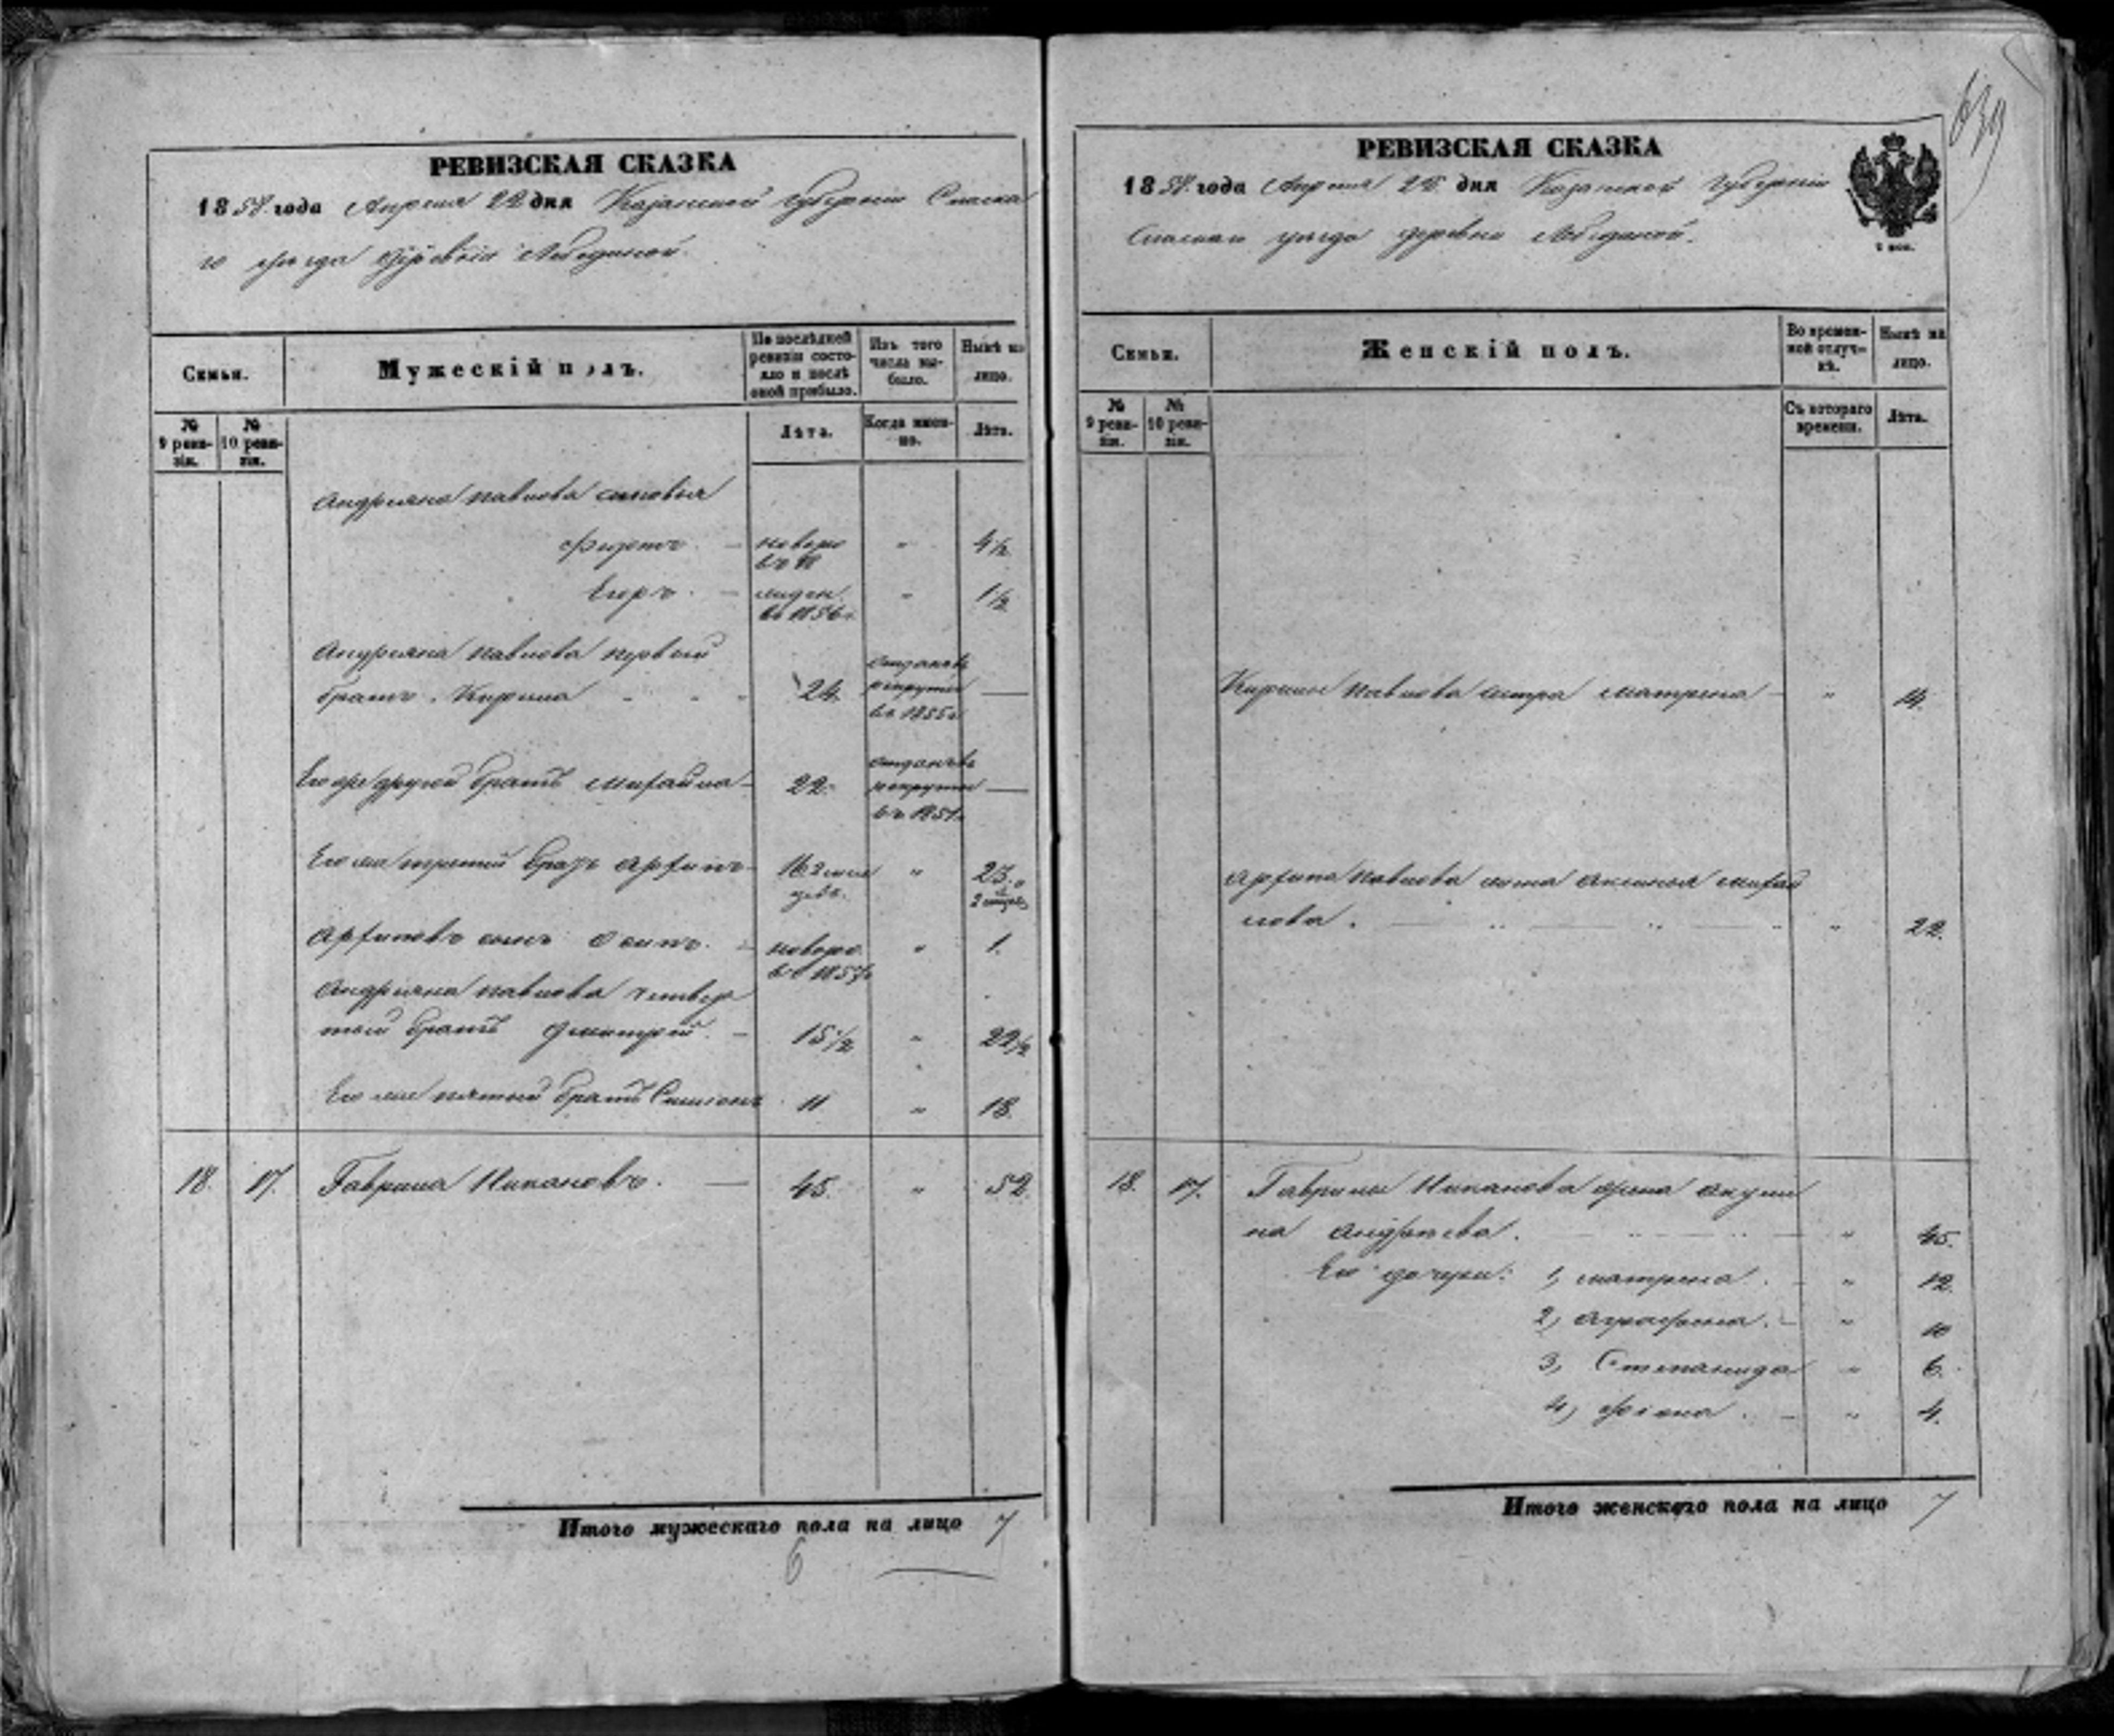 РЕВИЗСКАЯ СКАЗКА
1858 года Апреля 22 дня Казанской губернiи Спаска
го уѣзда деревни Лебединой.
Семьи.
Мужескiй полъ.
По послѣдней ревизiи состояло и послѣ оной прибыло.
Изъ того числа выбыло.
Нынѣ на лицо.
№ 9 ревизiи.
№ 10 ревизiи.
Лѣта.
Когда именно.
Лѣта.
Андреяна Павлова сыновья
новоро 4½
Егоръ. въ 1856 г. " 1½
Андреяна Павлова первый
братъ Кирила 24. отданъ въ рекруты въ 1855 г. —
Его же другой братъ Михайла 22. отданъ въ рекруты —
Его же третий братъ Архипъ 16 2 меся " 23. и 2 месяц
Архиповъ сынъ Осипъ. новоро. въ 1857 г. " 1.
Андреяна Павлова четвер
тый братъ Дмитрей. 15½ " 22½
Его же пятый братъ Симионъ 11 " 18.
18. 17. Гаврила Никановъ. — 45. " 52.
Итого мужескаго пола на лицо 7
6
639
РЕВИЗСКАЯ СКАЗКА
1858 года Апреля дня Казанской губернiи
Спаскаго уѣзда деревни Лебединой.
Семьи.
Женскiй полъ.
Во временной отлучкѣ.
Нынѣ на лицо.
№ 9 ревизiи.
№ 10 ревизiи.
Съ котораго времени.
Лѣта.
Кирилы Павлова сестра Матрена — " 14.
Архипа Павлова жена Аксинья Михай
лова. " 22.
18. 17. Гаврилы Никанова жена Акули
на Андреева. " 45.
Его дочери: 1, Матрена. — " 12.
2, Аграфена. — " 10
3, Степанида " 6.
4, — " 4.
Итого женскаго пола на лицо 7